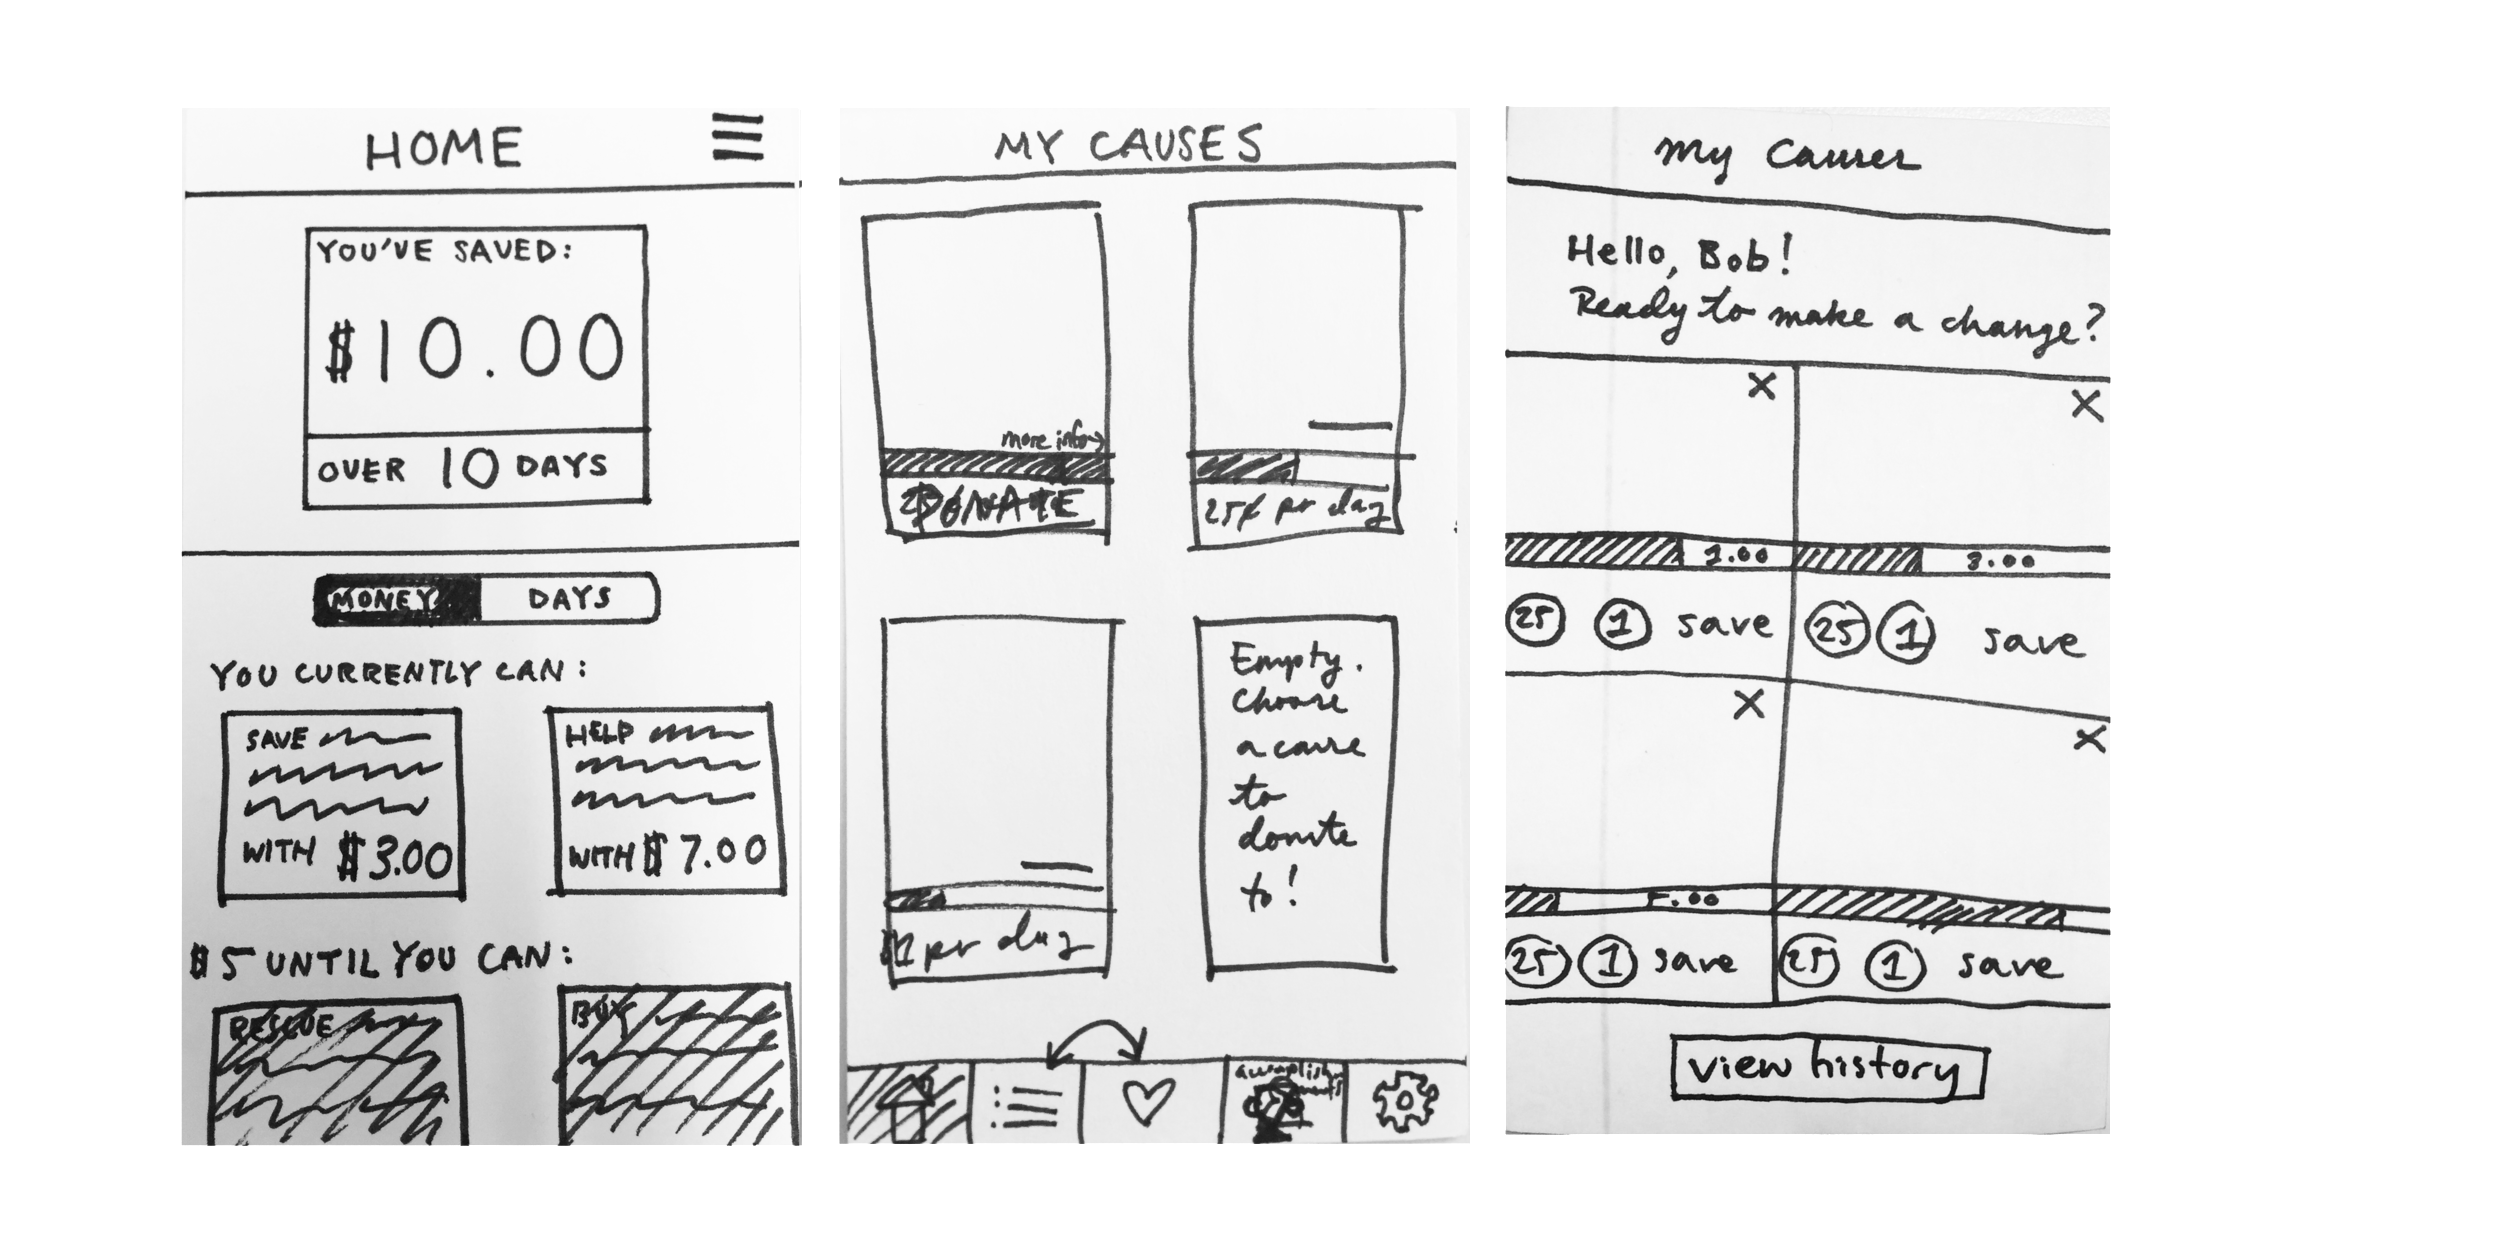 HOME
YOU'VE SAVED:
$10.00
OVER 10 DAYS
MONEY DAYS
YOU CURRENTLY CAN:
SAVE
WITH $3.00
HELP
WITH $7.00
$5 UNTIL YOU CAN:
RESCUE
BUY
MY CAUSES
more info→
DONATE
25¢ per day
per day
Empty.
Choose
a cause
to
donate
to!
accomplish
ments
My Causes
Hello, Bob!
Ready to make a change?
X
X
1.00
3.00
25 1 save
25 1 save
X
X
.00
25 1 save
25 1 save
view history